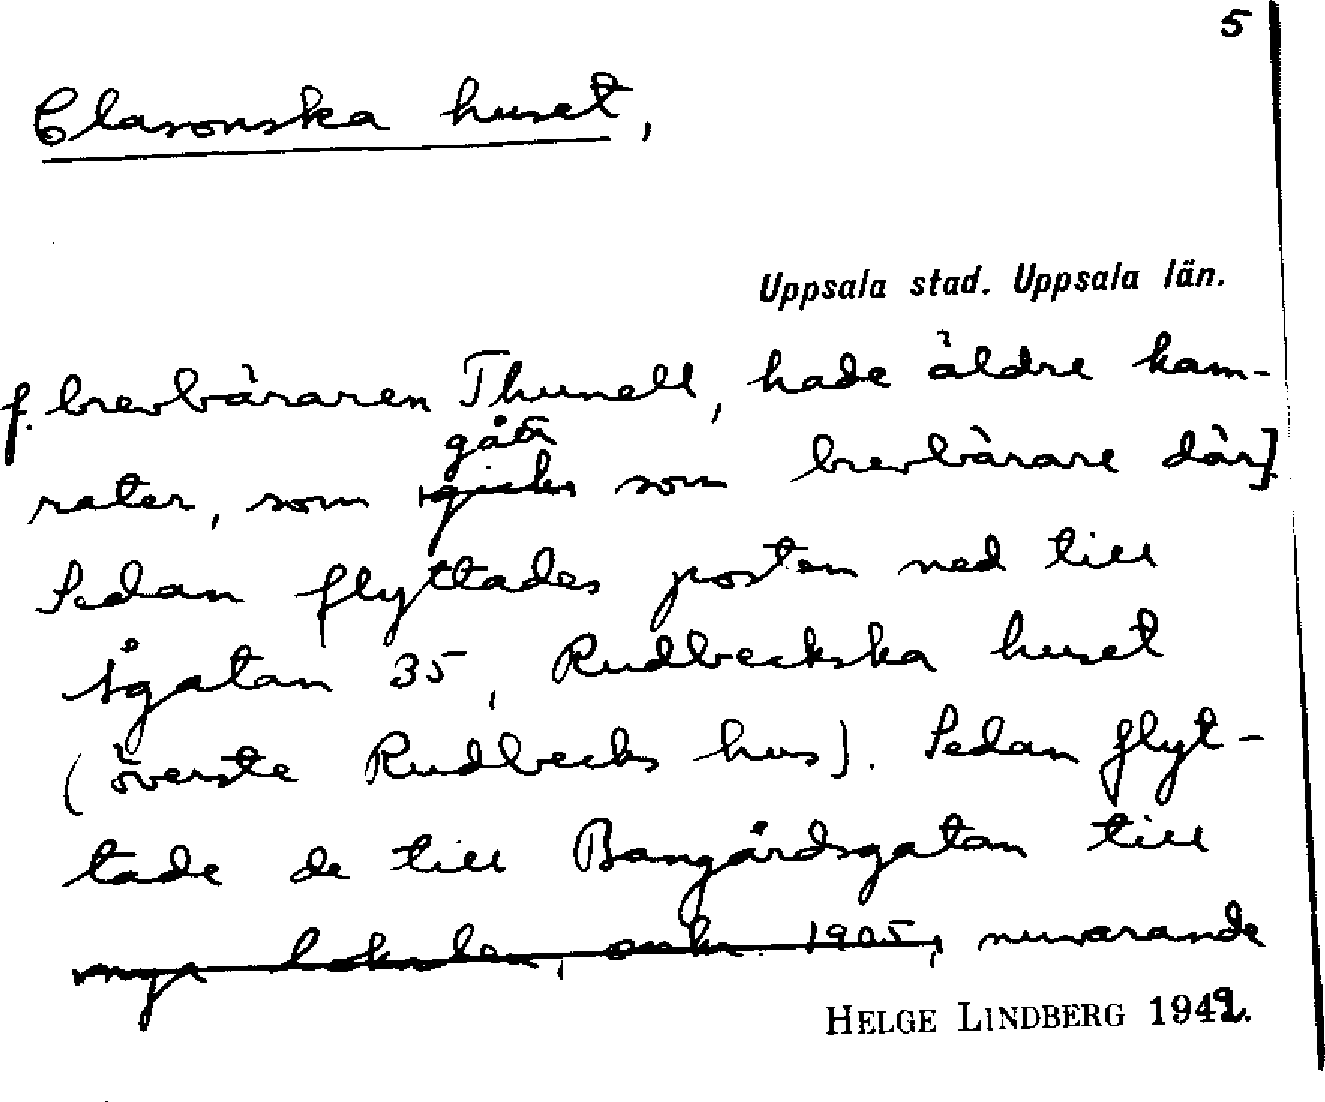 5
Clasonska huset,
Uppsala stad. Uppsala län.
f. brevbäraren Thunell, hade äldre kam-
gått
rater, som gicks som brevbärare där]
Sedan flyttades posten ned till
Ågatan 35, Rudbeckska huset
(överste Rudbecks hus). Sedan flyt-
tade de till Bangårdsgatan till
nya lokaler, omkr. 1905, nuvarande
HELGE LINDBERG 1949.